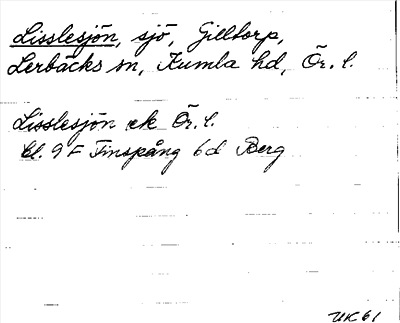 Lisslesjön, sjö, Gilltorp,
Lerbäcks sn, Kumla hd, Ör. l.
Lisslesjön ek Ör. l.
bl. 9 F Finspång 6d Berg
UK 61